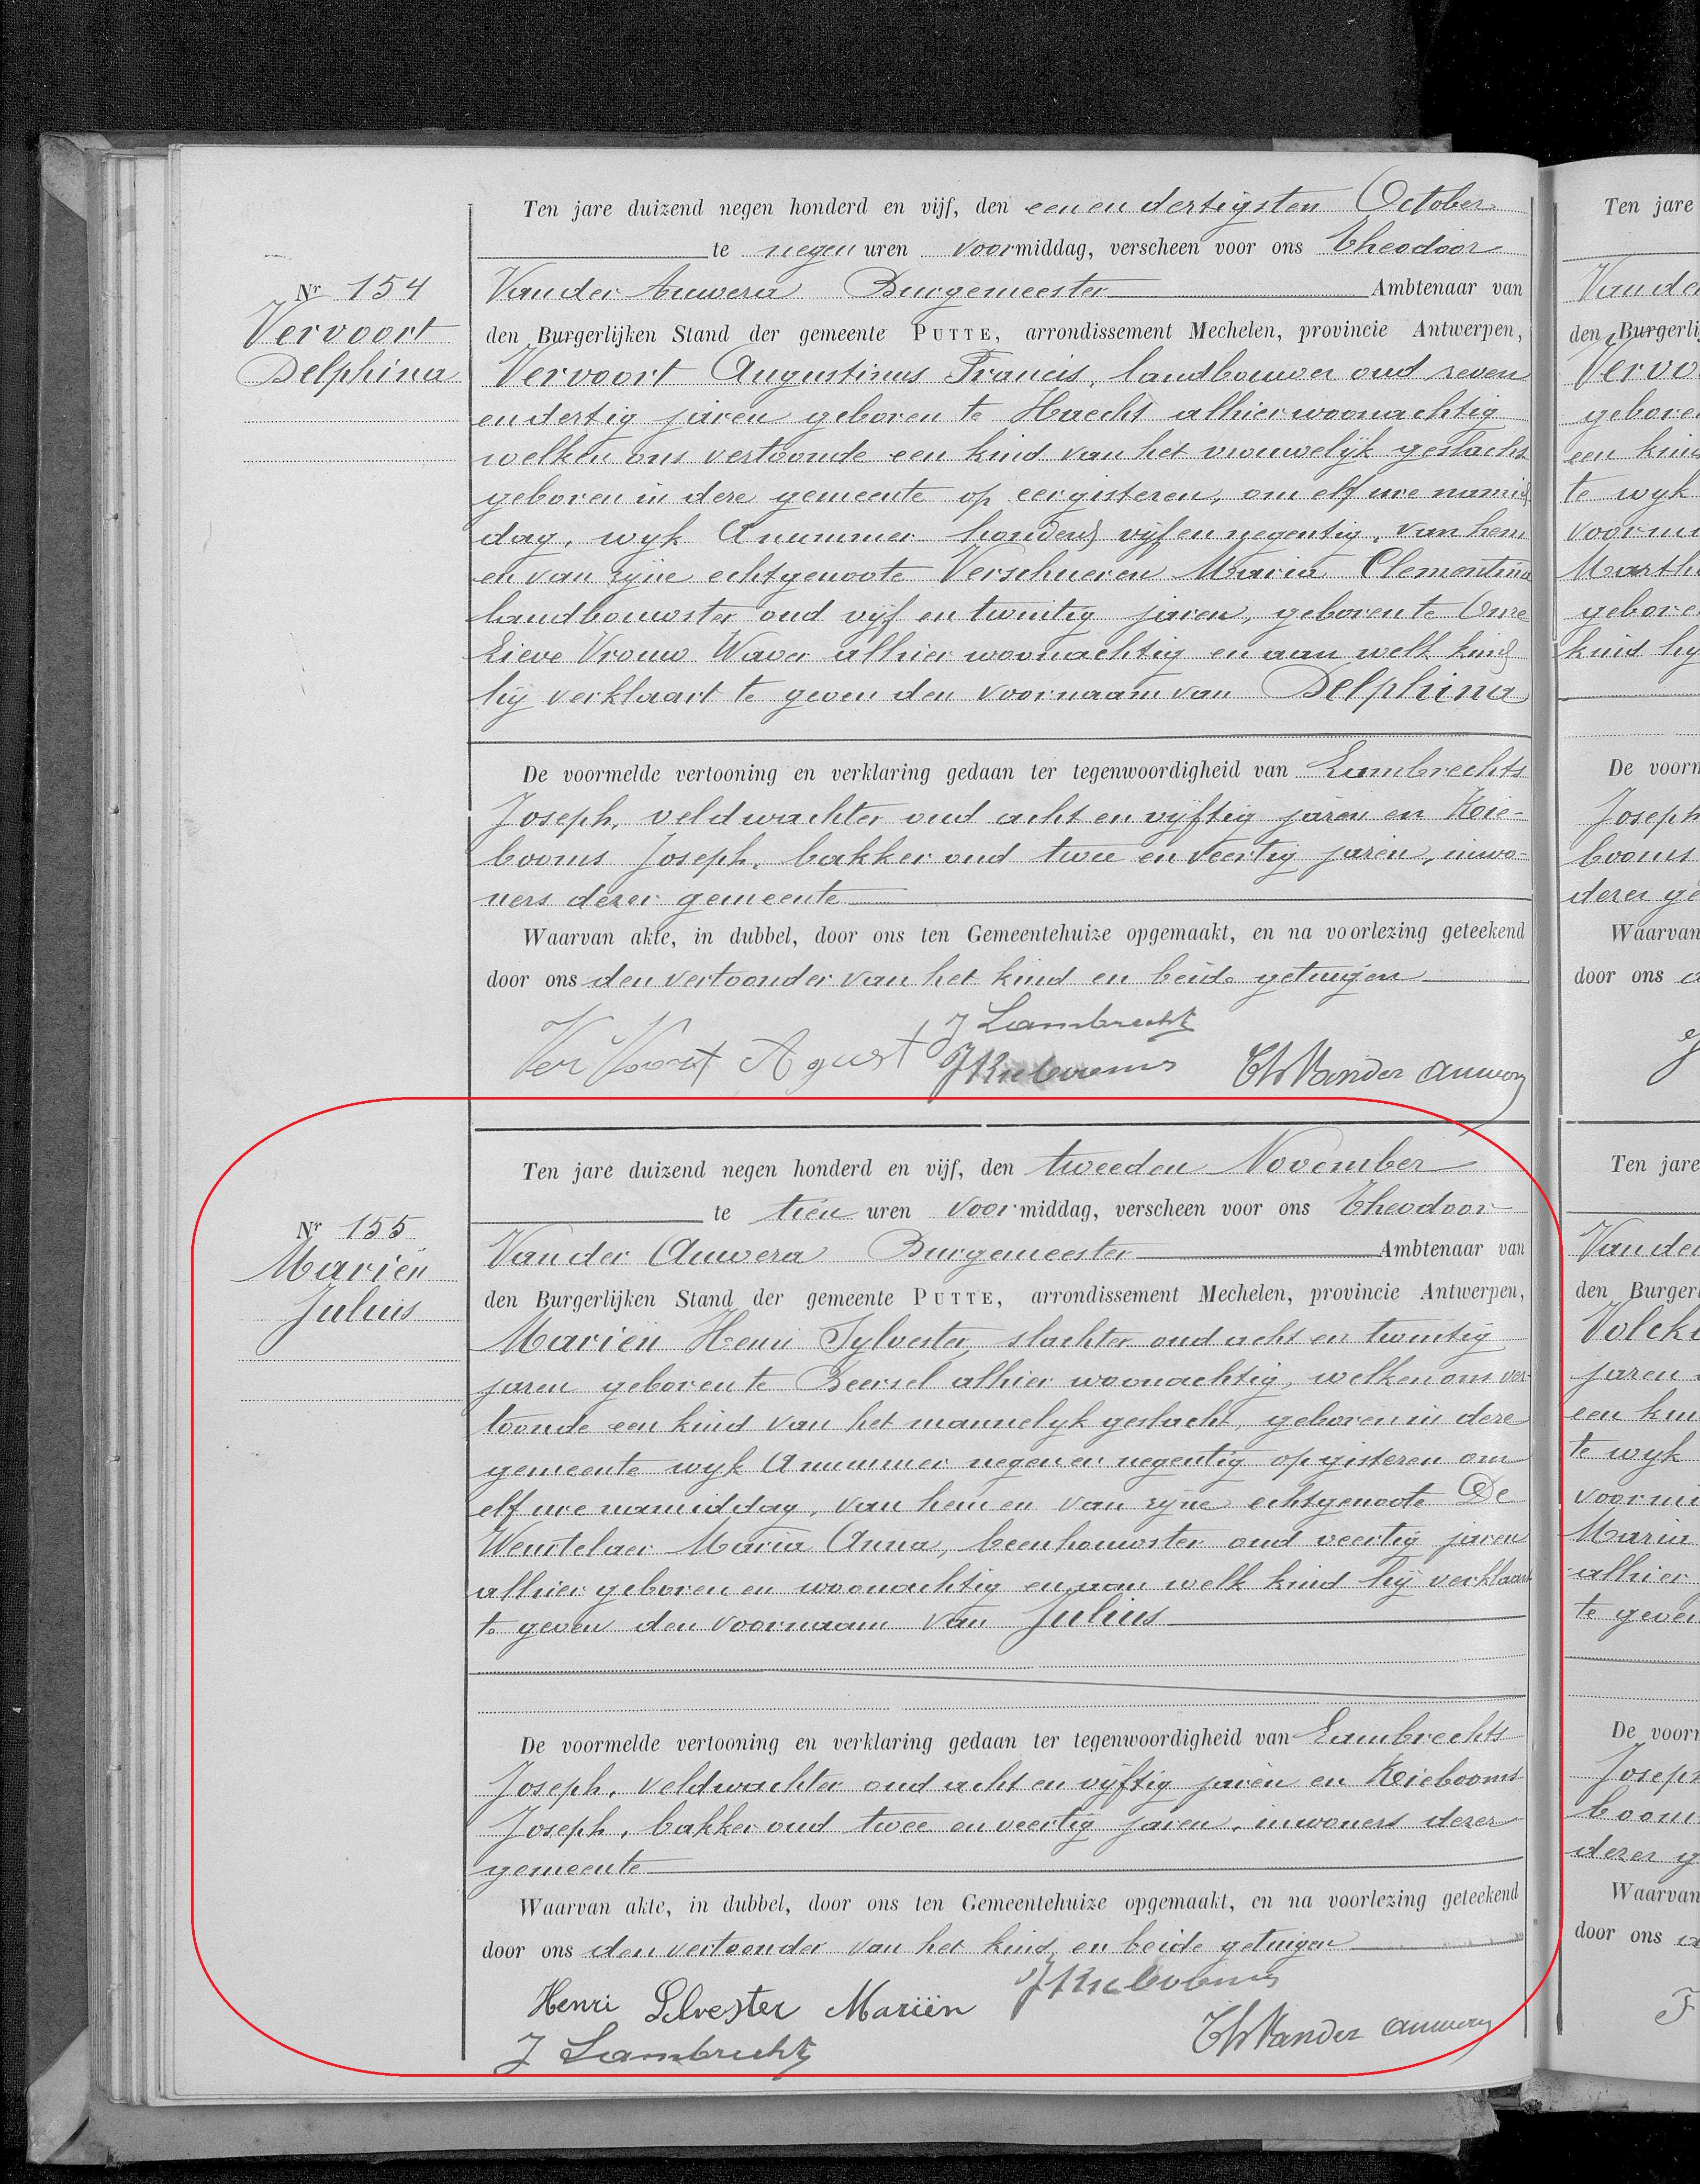 Ten jare duizend negen honderd en vijf, den eenen dertigsten October
te negen uren voormiddag, verscheen voor ons Theodoor
Nr 154
Van der Auwera Burgemeester Ambtenaar van
Vervoort
den Burgerlijken Stand der gemeente PUTTE, arrondissement Mechelen, provincie Antwerpen,
Delphina
Vervoort Augustinus Francis, landbouwer oud zeven
en dertig jaren geboren te Haecht alhier woonachtig
welken ons vertoonde een kind van het vrouwelijk geslacht
geboren in deze gemeente op eergisteren, om elf ure namid
dag, wyk A nummer honderd vijf en negentig, van hem
en van zijne echtgenoote Verschueren Maria Clementina
landbouwster oud vijf en twintig jaren, geboren te Onze
Lieve Vrouw Waver alhier woonachtig en aan welk kind
hij verklaart te geven den voornaam van Delphina
De voormelde vertooning en verklaring gedaan ter tegenwoordigheid van Lambrechts
Joseph, veldwachter oud acht en vijftig jaren en Kie-
booms Joseph, bakker oud twee en veertig jaren, inwo-
ners dezer gemeente
Waarvan akte, in dubbel, door ons ten Gemeentehuize opgemaakt, en na voorlezing geteekend
door ons den vertoonder van het kind en beide getuigen
J Lambrechts
VerVoort Agust J Kiebooms Th Vander auwera
Ten jare duizend negen honderd en vijf, den tweeden November
te tien uren voormiddag, verscheen voor ons Theodoor
Nr 155
Van der Auwera Burgemeester Ambtenaar van
Mariën
den Burgerlijken Stand der gemeente PUTTE, arrondissement Mechelen, provincie Antwerpen,
Julius
Mariën Henri Sylvester, slachter oud acht en twintig
jaren geboren te Beersel alhier woonachtig, welken ons ver-
toonde een kind van het mannelyk geslacht, geboren in deze
gemeente wyk A nummer negen en negentig op gisteren om
elf ure namiddag, van hem en van zyne echtgenoote De
Weustelaer Maria Anna, beenhouwster oud veertig jaren
alhier geboren en woonachtig en aan welk kind hij verklaart
te geven den voornaam van Julius
De voormelde vertooning en verklaring gedaan ter tegenwoordigheid van Lambrechts
Joseph, veldwachter oud acht en vijftig jaren en Kiebooms
Joseph, bakker oud twee en veertig jaren, inwoners dezer
gemeente
Waarvan akte, in dubbel, door ons ten Gemeentehuize opgemaakt, en na voorlezing geteekend
door ons den vertoonder van het kind, en beide getuigen
J Kiebooms
Henri Silvester Mariën
Th Vander auwera
J Lambrechts
Ten jare
Van de
den Burgerli
Vervo
gebore
een kind
te wyk
voormi
Marth
gebore
kind hy
De voorm
Joseph
booms
dezer ge
Waarvan
door ons
Ten jare
Van de
den Burgerl
Volck
jaren
een kin
te wyk
voormi
Maria
alhier
te geven
De voorm
Joseph
boom
dezer g
Waarvan
door ons